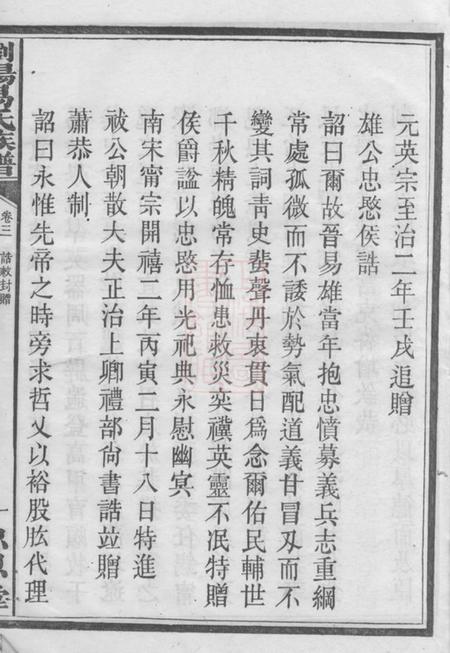 元英宗至治二年壬戌追贈
雄公忠愍侯誥
詔曰爾故晉易雄當年抱忠憤募義兵志重綱
常處孤微而不諉於勢氣配道義甘冒刄而不
變其詞青史蜚聲丹衷貫日爲念爾佑民輔世
千秋精魄常存恤患救災奕禩英靈不泯特贈
侯爵諡以忠愍用光祀典永慰幽冥
南宋甯宗開禧二年丙寅三月十八日特進
祓公朝散大夫正治上卿禮部尙書誥竝贈
蕭恭人制
詔曰永惟先帝之時旁求哲乂以裕股肱代理
瀏陽易氏族譜
卷三
誥敕封贈
一